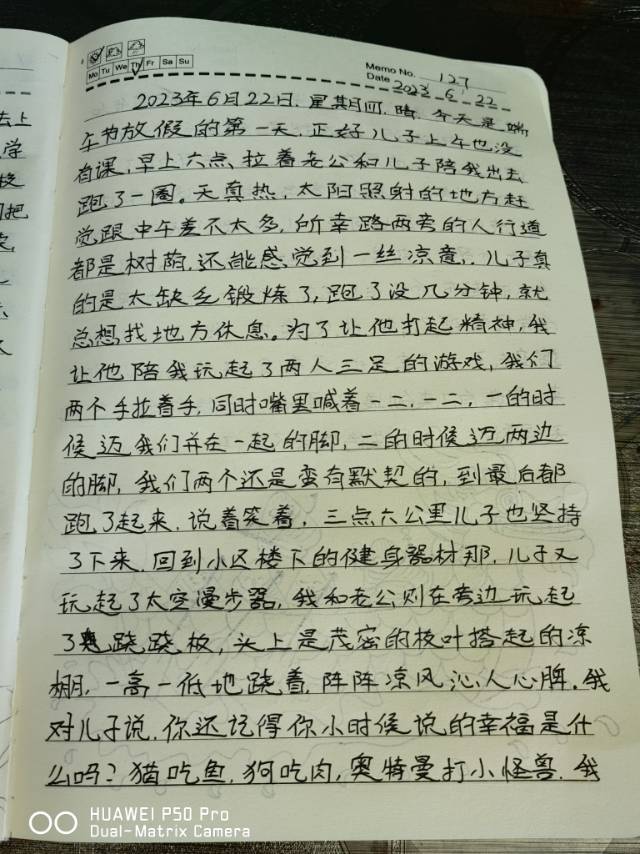 Mo Tu We Th Fr Sa Su
Memo No. 127
Date 2023 6 22
2023年6月22日.星期四.晴.今天是端
午节放假的第一天.正好儿子上午也没
有课,早上六点,拉着老公和儿子陪我出去
跑了一圈。天真热,太阳照射的地方赶
觉跟中午差不太多,所幸路两旁的人行道
都是树荫,还能感觉到一丝凉意,.儿子真
的是太缺乏锻炼了,跑了没几分钟,就
总想找地方休息。为了让他打起精神,我
让他陪我玩起了两人三足的游戏,我们
两个手拉着手,同时嘴里喊着一二,一二,一的时
候迈我们并在一起的脚,二的时候迈两边
的脚,我们两个还是蛮有默契的,到最后都
跑了起来,说着笑着,三点六公里儿子也坚持
了下来.回到小区楼下的健身器材那,儿子又
玩起了太空漫步器,我和老公则在旁边玩起
了跷跷板,头上是茂密的枝叶搭起的凉
棚,一高一低地跷着,阵阵凉风沁人心脾.我
对儿子说,你还记得你小时候说的幸福是什
么吗?猫吃鱼,狗吃肉,奥特曼打小怪兽.我
去上
学
校
把
HUAWEI P50 Pro
Dual-Matrix Camera